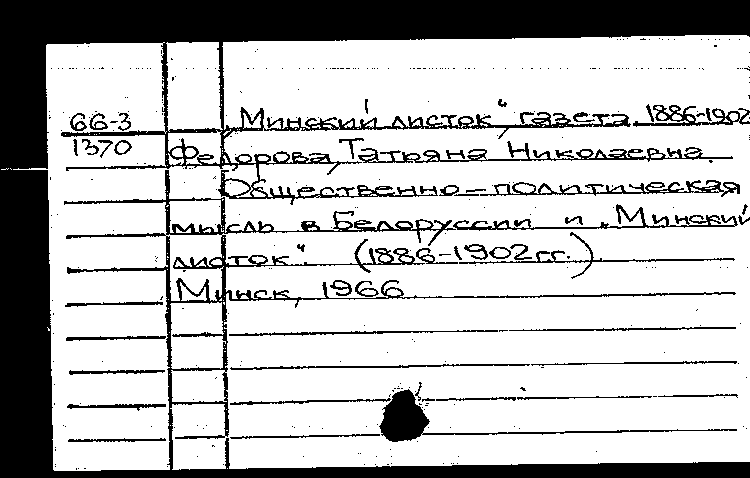 66-3 „Минский листок“ газета. 1886-1902
1370 Федорова, Татьяна Николаевна.
Общественно-политическая
мысль в Белоруссии и „Минский
листок“. (1886-1902гг.)
Минск, 1966